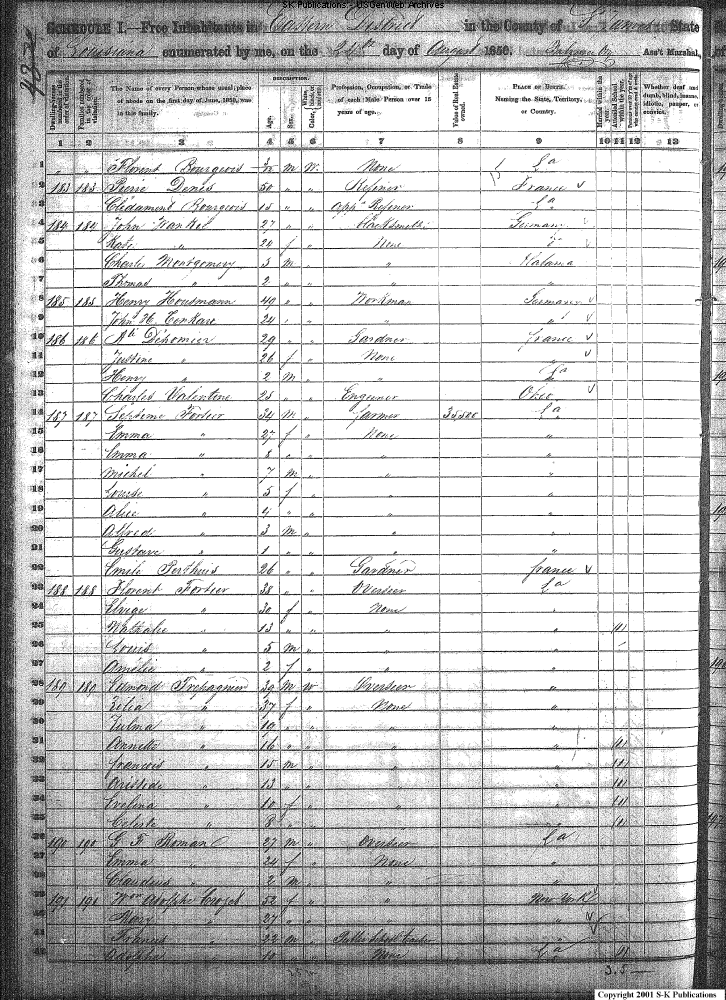 S-K Publications - USGenWeb Archives
SCHEDULE I.—Free Inhabitants in Eastern District in the County of St James State
of Louisiana enumerated by me, on the 24th day of August 1850. Ass't Marshal,
Dwelling-houses numbered in the order of visitation.
The Name of every Person whose usual place of abode on the first day of June, 1850, was in this family.
DESCRIPTION.
Age.
Sex.
Color,
Profession, Occupation, or Trade of each Male Person over 15 years of age.
Value of Real Estate owned.
PLACE OF BIRTH. Naming the State, Territory, or Country.
Married within the year.
Attended School within the year.
Whether deaf and dumb, blind, insane, idiotic, pauper, or convict.
1 2 3 4 5 6 7 8 9 10 11 12 13
1 " " Florent Bourgeois m W. None La
2 183 183 Pierre Denis 50 " " Refiner France
3 Clidament Bourgeois 15 " " App Refiner La
4 184 184 John Wankel 27 " " Blacksmith Germany
5 Kate " 24 f " None "
6 Charles Montgomery 3 m " " Alabama
7 Thomas " 2 " " " "
8 185 185 Henry Housmann 49 " " Workman Germany
9 John H. 24 " " " "
10 186 186 29 " " Gardner France
11 Justine " 26 f " None "
12 Henry " 2 m " " La
13 Charles Valentine 25 " " Engineer Ohio
14 187 187 Septime Fortier 34 m " Farmer 35500 La
15 Emma " 27 f " None "
16 Emma " 8 " " " "
17 Michel " 7 m " "
18 Louise " 5 f " "
19 Alice " 4 " " " "
20 Alfred " 3 m " " "
21 Gustave " 1 " " " "
22 Emile Perthuis 26 " " Gardner France
23 188 188 Florent Fortier 38 " " Overseer La
24 " 30 f " None "
25 Nathalie " 13 " " " " (1)
26 Louis " 5 m " " "
27 Amélie " 2 f " " "
28 189 189 Edmond Trepagnier 39 m w Overseer "
29 Zélia " 37 f " None "
30 Zulma " 19 " " " "
31 Annette " 16 " " " " (1)
32 Francois " 15 m " " " (1)
33 Aristide " 13 " " " " (1)
34 Evelina " 10 f " " " (1)
35 Celeste " 8 " " " " (1)
36 190 190 G. F. Roman 27 m " Overseer La
37 Emma " 24 f " None "
38 Claudius " 2 m " " "
39 191 191 Adolphe 52 f " " New York
40 Mary " 27 " " " "
41 Francis " 22 m " Public School Teacher "
42 " 10 " " None La (1)
Copyright 2001 S-K Publications